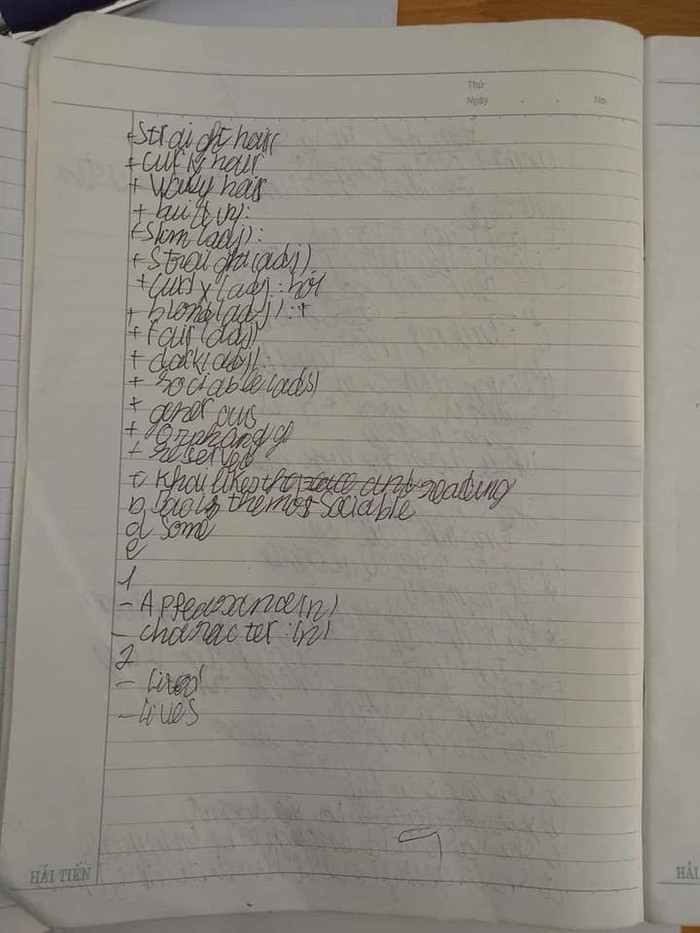 Thứ
Ngày - - No.
+ Straight hair
+ curly hair
+ Wavy hair
+ built (n):
+ Slim (adj):
+ Straight (adj)
+ curly (adj):
+ blond (adj):
+ Fair (adj)
+ dark (adj)
+ Sociable (adj)
+ generous
+ orphanage
+ reserved
Khoi likes reading
b Bao is the most Sociable
d Some
e
1
- Appearance (n)
- character : (n)
2
- Lived
- Lives
HẢI TIẾN
HẢI